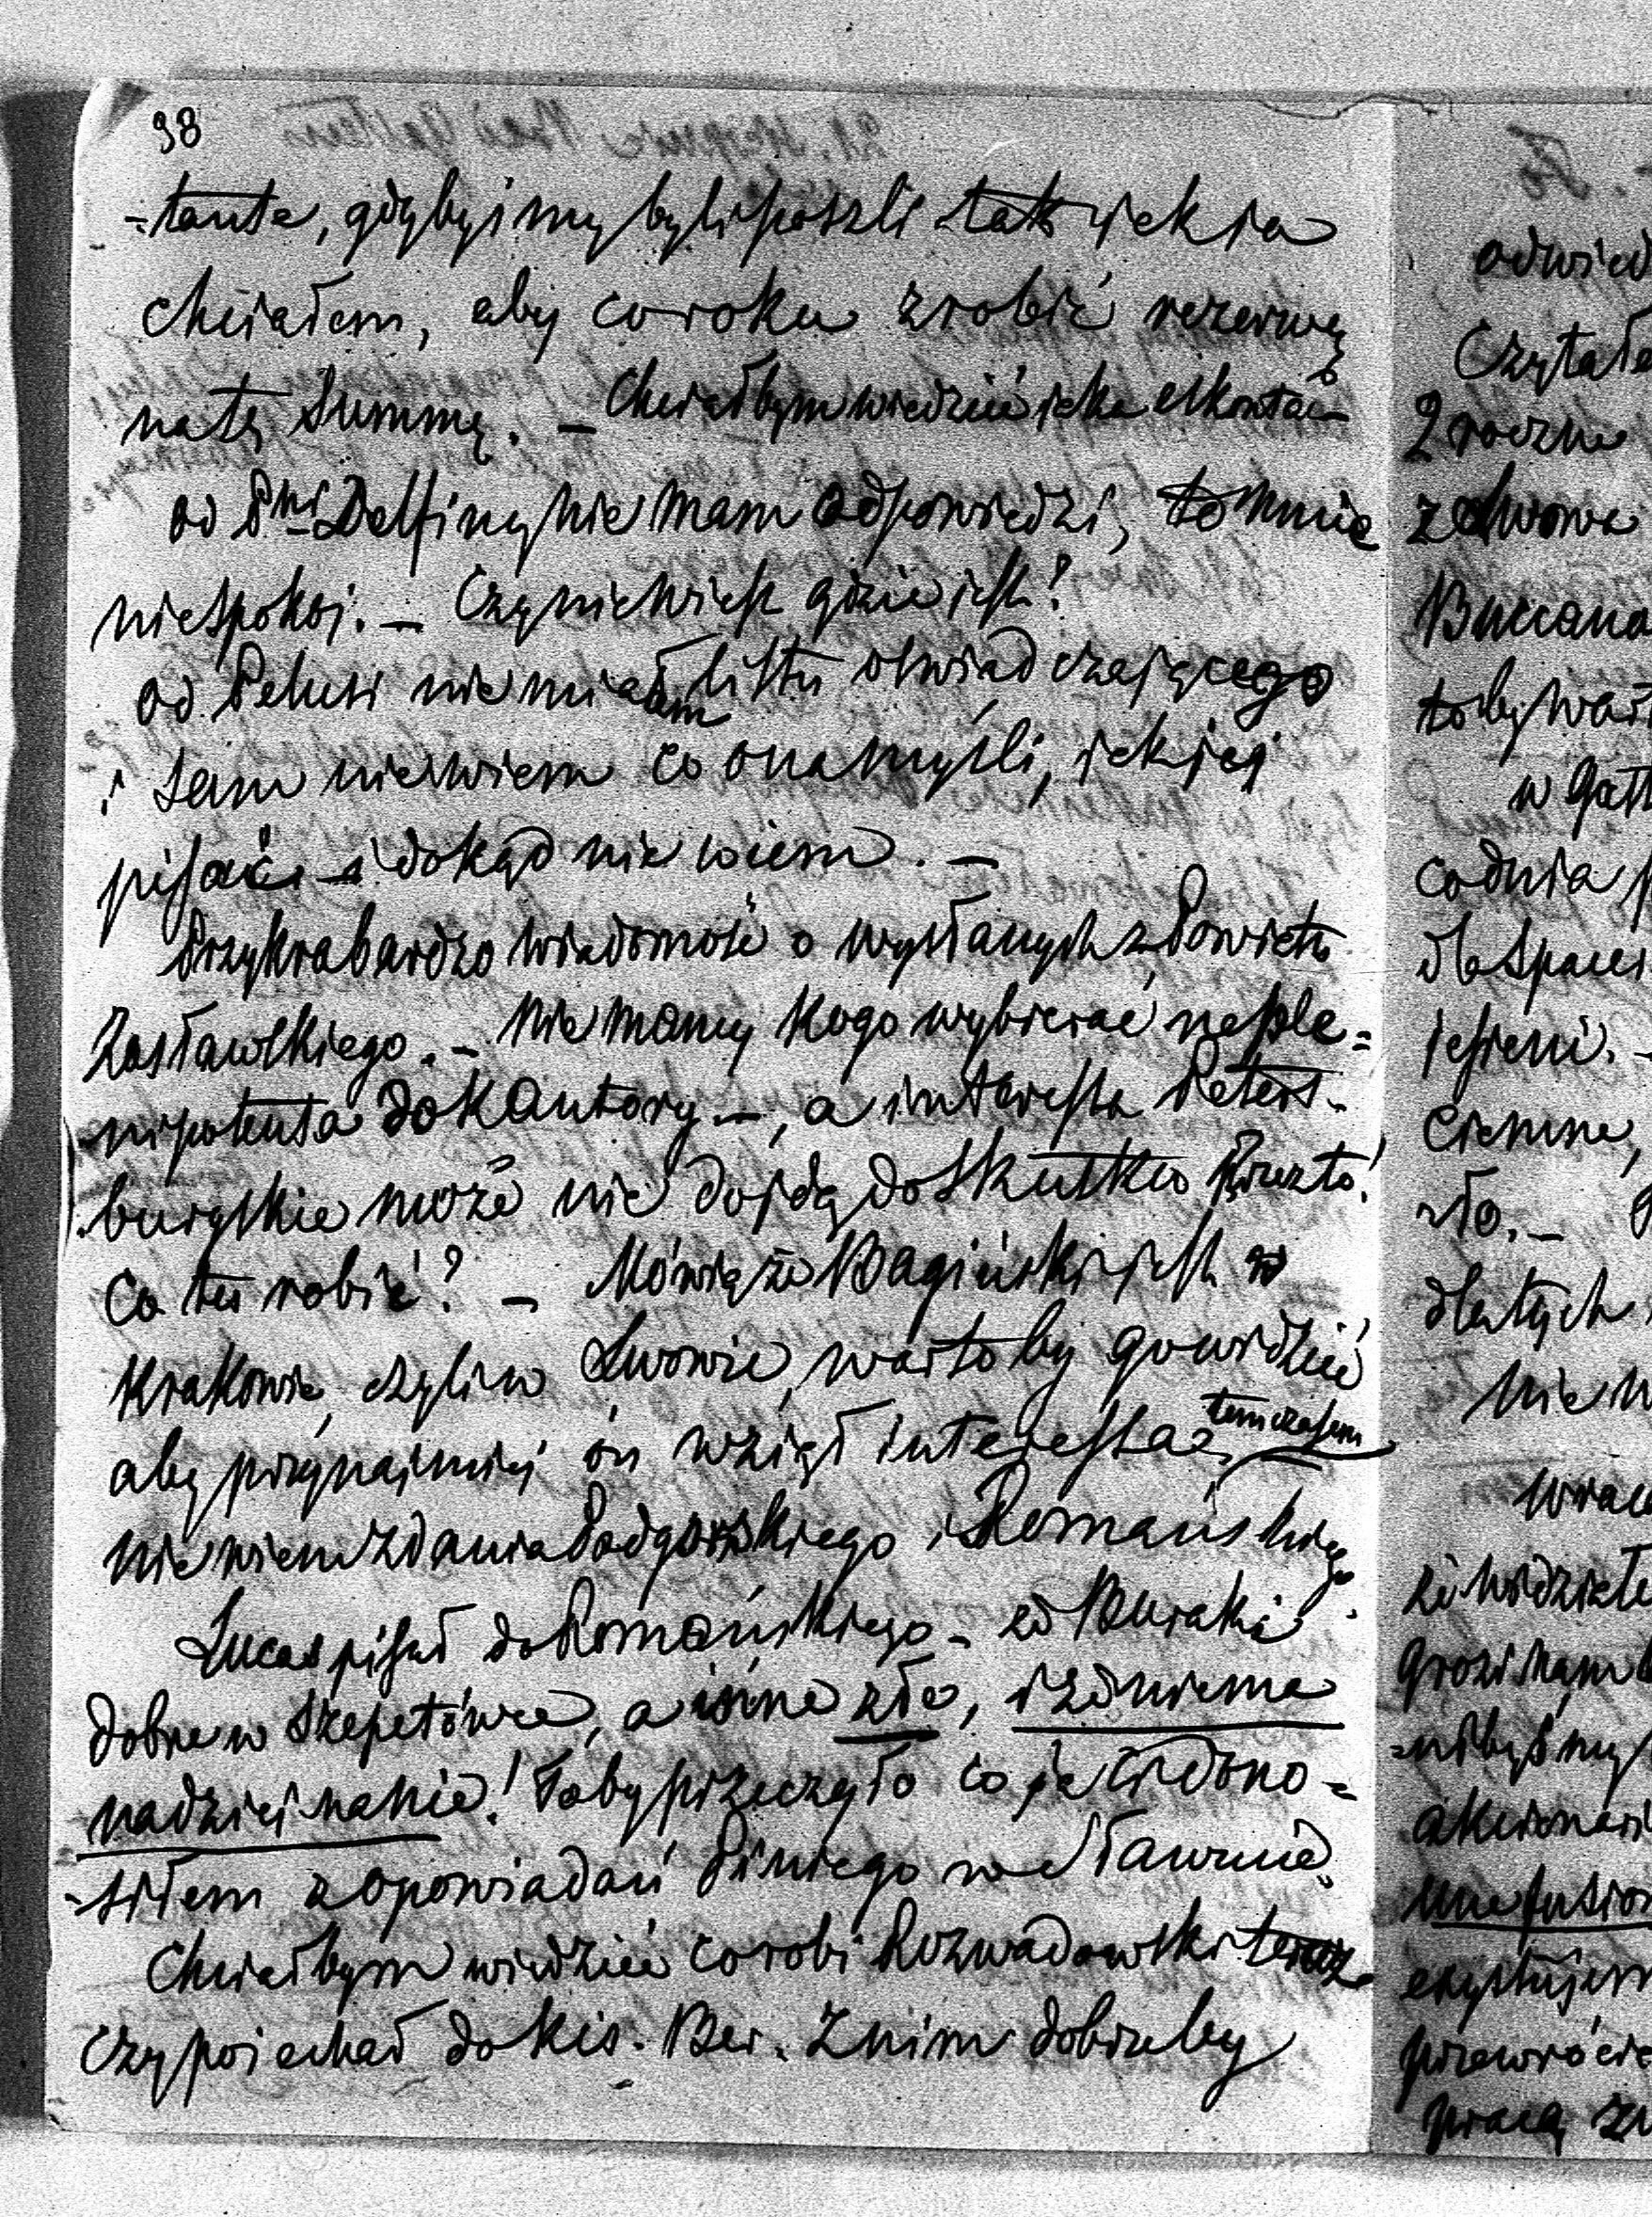 98
-tanta, gdybyśmy byli poszli tak jak ja
chciałem, aby co roku zrobić rezerwę
na tę Summę. – Chciałbym wiedzieć jaka
od Pni Delfiny nie mam odpowiedzi, to mnie
niespokoj. – Czy nie wiesz gdzie jest?
od Pelusi nie miałem listu oświadczającego
i sam nie wiem co ona myśli, jak jej
pisać i dokąd nie wiem. –
Przykra bardzo wiadomość o wysłanych z Powiatu
Zasławskiego. – Nie mamy kogo wybierać na ple=
nipotenta do Kantory –, a interessa Peters-
burgskie może nie dojdą do skutku przez to!
Co tu robić? – Mówią że Bagiński jest w
Krakowie, czyli w Lwowie, wartoby go widzieć
aby przynajmniej on wziął interessa, temczasem
nie wiem zdania Podgorskiego i Romańskiego.
Lucas pisał do Romańskiego – że Buraki
dobre w Szepetówce, a inne złe, i że niema
nadziei na nie! Toby przeczyło co ja Ci dono=
-siłem z opowiadań Piniego w Sławucie.
Chciałbym wiedzieć co robi Rozwadowski teraz
czy pojechał do Kis. Ber. Z nim dobrzeby
odwied
Czytałe
2 roczne
ze Lwowa
toby wart
w gatt
codnia
jesieni. –
Ciemne,
zło. –
dla tych
nie
wrac
że widziałe
grozi nam
-nibyśmy
akcionari
une fusion
exystujem
przewrócie
pracą